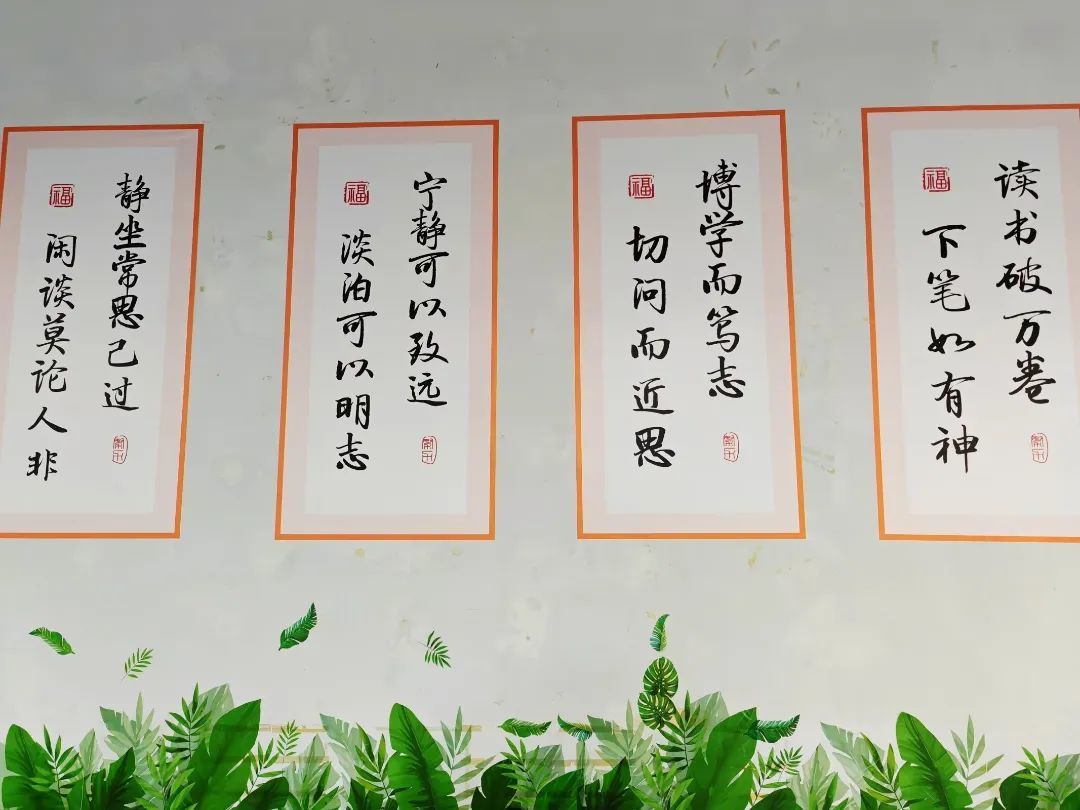 读书破万卷
下笔如有神
福
博学而笃志
切问而近思
福
宁静可以致远
淡泊可以明志
福
静坐常思己过
闲谈莫论人非
福